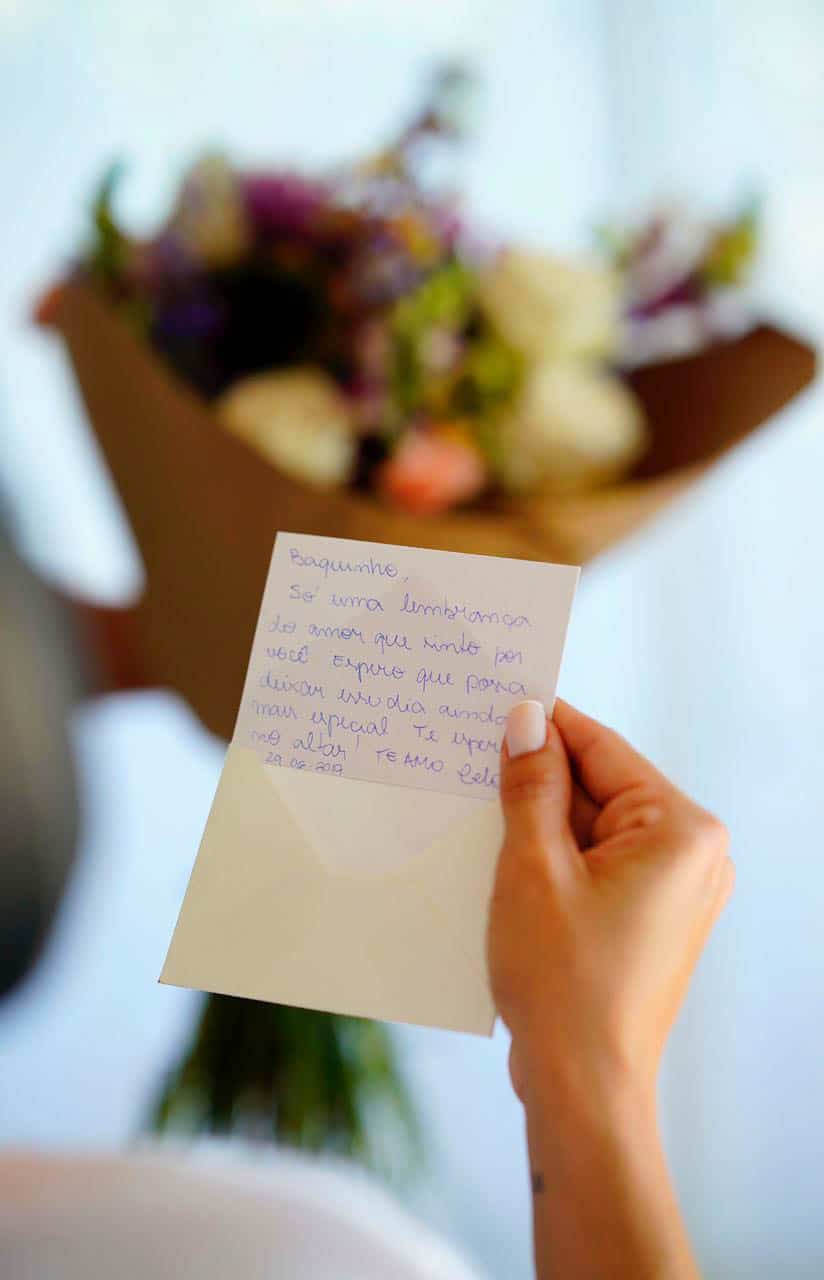 Baquinho,
Só uma lembrança
do amor que sinto por
você Espero que possa
deixar esse dia ainda
mais especial Te esper
no altar! TE AMO
29.06.2019